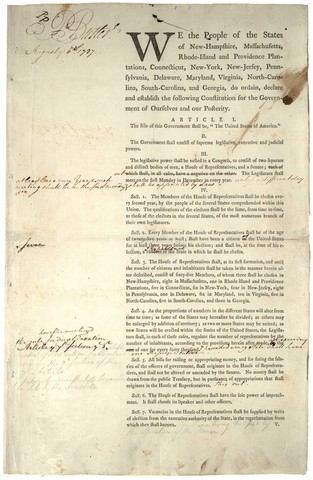 August 6th 1787
WE the People of the States
of New-Hampshire, Massachusetts,
Rhode-Island and Providence Plan-
tations, Connecticut, New-York, New-Jersey, Penn-
sylvania, Delaware, Maryland, Virginia, North-Caro-
lina, South-Carolina, and Georgia, do ordain, declare
and establish the following Constitution for the Govern-
ment of Ourselves and our Posterity.
ARTICLE I.
The stile of this Government shall be, "The United States of America."
II.
The Government shall consist of supreme legislative, executive and judicial
powers.
III.
The legislative power shall be vested in a Congress, to consist of two separate
and distinct bodies of men, a House of Representatives, and a Senate; each of
which shall, in all cases, have a negative on the other. The Legislature shall
meet on the first Monday in December in every year.
IV.
Sect. 1. The Members of the House of Representatives shall be chosen eve-
ry second year, by the people of the several States comprehended within this
Union. The qualifications of the electors shall be the same, from time to time,
as those of the electors in the several States, of the most numerous branch of
their own legislatures.
Sect. 2. Every Member of the House of Representatives shall be of the age
of twenty-five years at least; shall have been a citizen in the United States for
at least three years before his election; and shall be, at the time of his e-
lection, a resident of the State in which he shall be chosen.
Sect. 3. The House of Representatives shall, at its first formation, and until
the number of citizens and inhabitants shall be taken in the manner herein af-
ter described, consist of sixty-five Members, of whom three shall be chosen in
New-Hampshire, eight in Massachusetts, one in Rhode-Island and Providence
Plantations, five in Connecticut, six in New-York, four in New-Jersey, eight
in Pennsylvania, one in Delaware, six in Maryland, ten in Virginia, five in
North-Carolina, five in South-Carolina, and three in Georgia.
Sect. 4. As the proportions of numbers in the different States will alter from
time to time; as some of the States may hereafter be divided; as others may
be enlarged by addition of territory; as two or more States may be united; as
new States will be erected within the limits of the United States, the Legisla-
ture shall, in each of these cases, regulate the number of representatives by the
number of inhabitants, according to the provisions herein after made, at the
rate of one for every forty thousand.
Sect. 5. All bills for raising or appropriating money, and for fixing the sala-
ries of the officers of government, shall originate in the House of Representa-
tives, and shall not be altered or amended by the Senate. No money shall be
drawn from the public Treasury, but in pursuance of appropriations that shall
originate in the House of Representatives.
Sect. 6. The House of Representatives shall have the sole power of impeach-
ment. It shall choose its Speaker and other officers.
Sect. 7. Vacancies in the House of Representatives shall be supplied by writs
of election from the executive authority of the State, in the representation from
which they shall happen.
V.